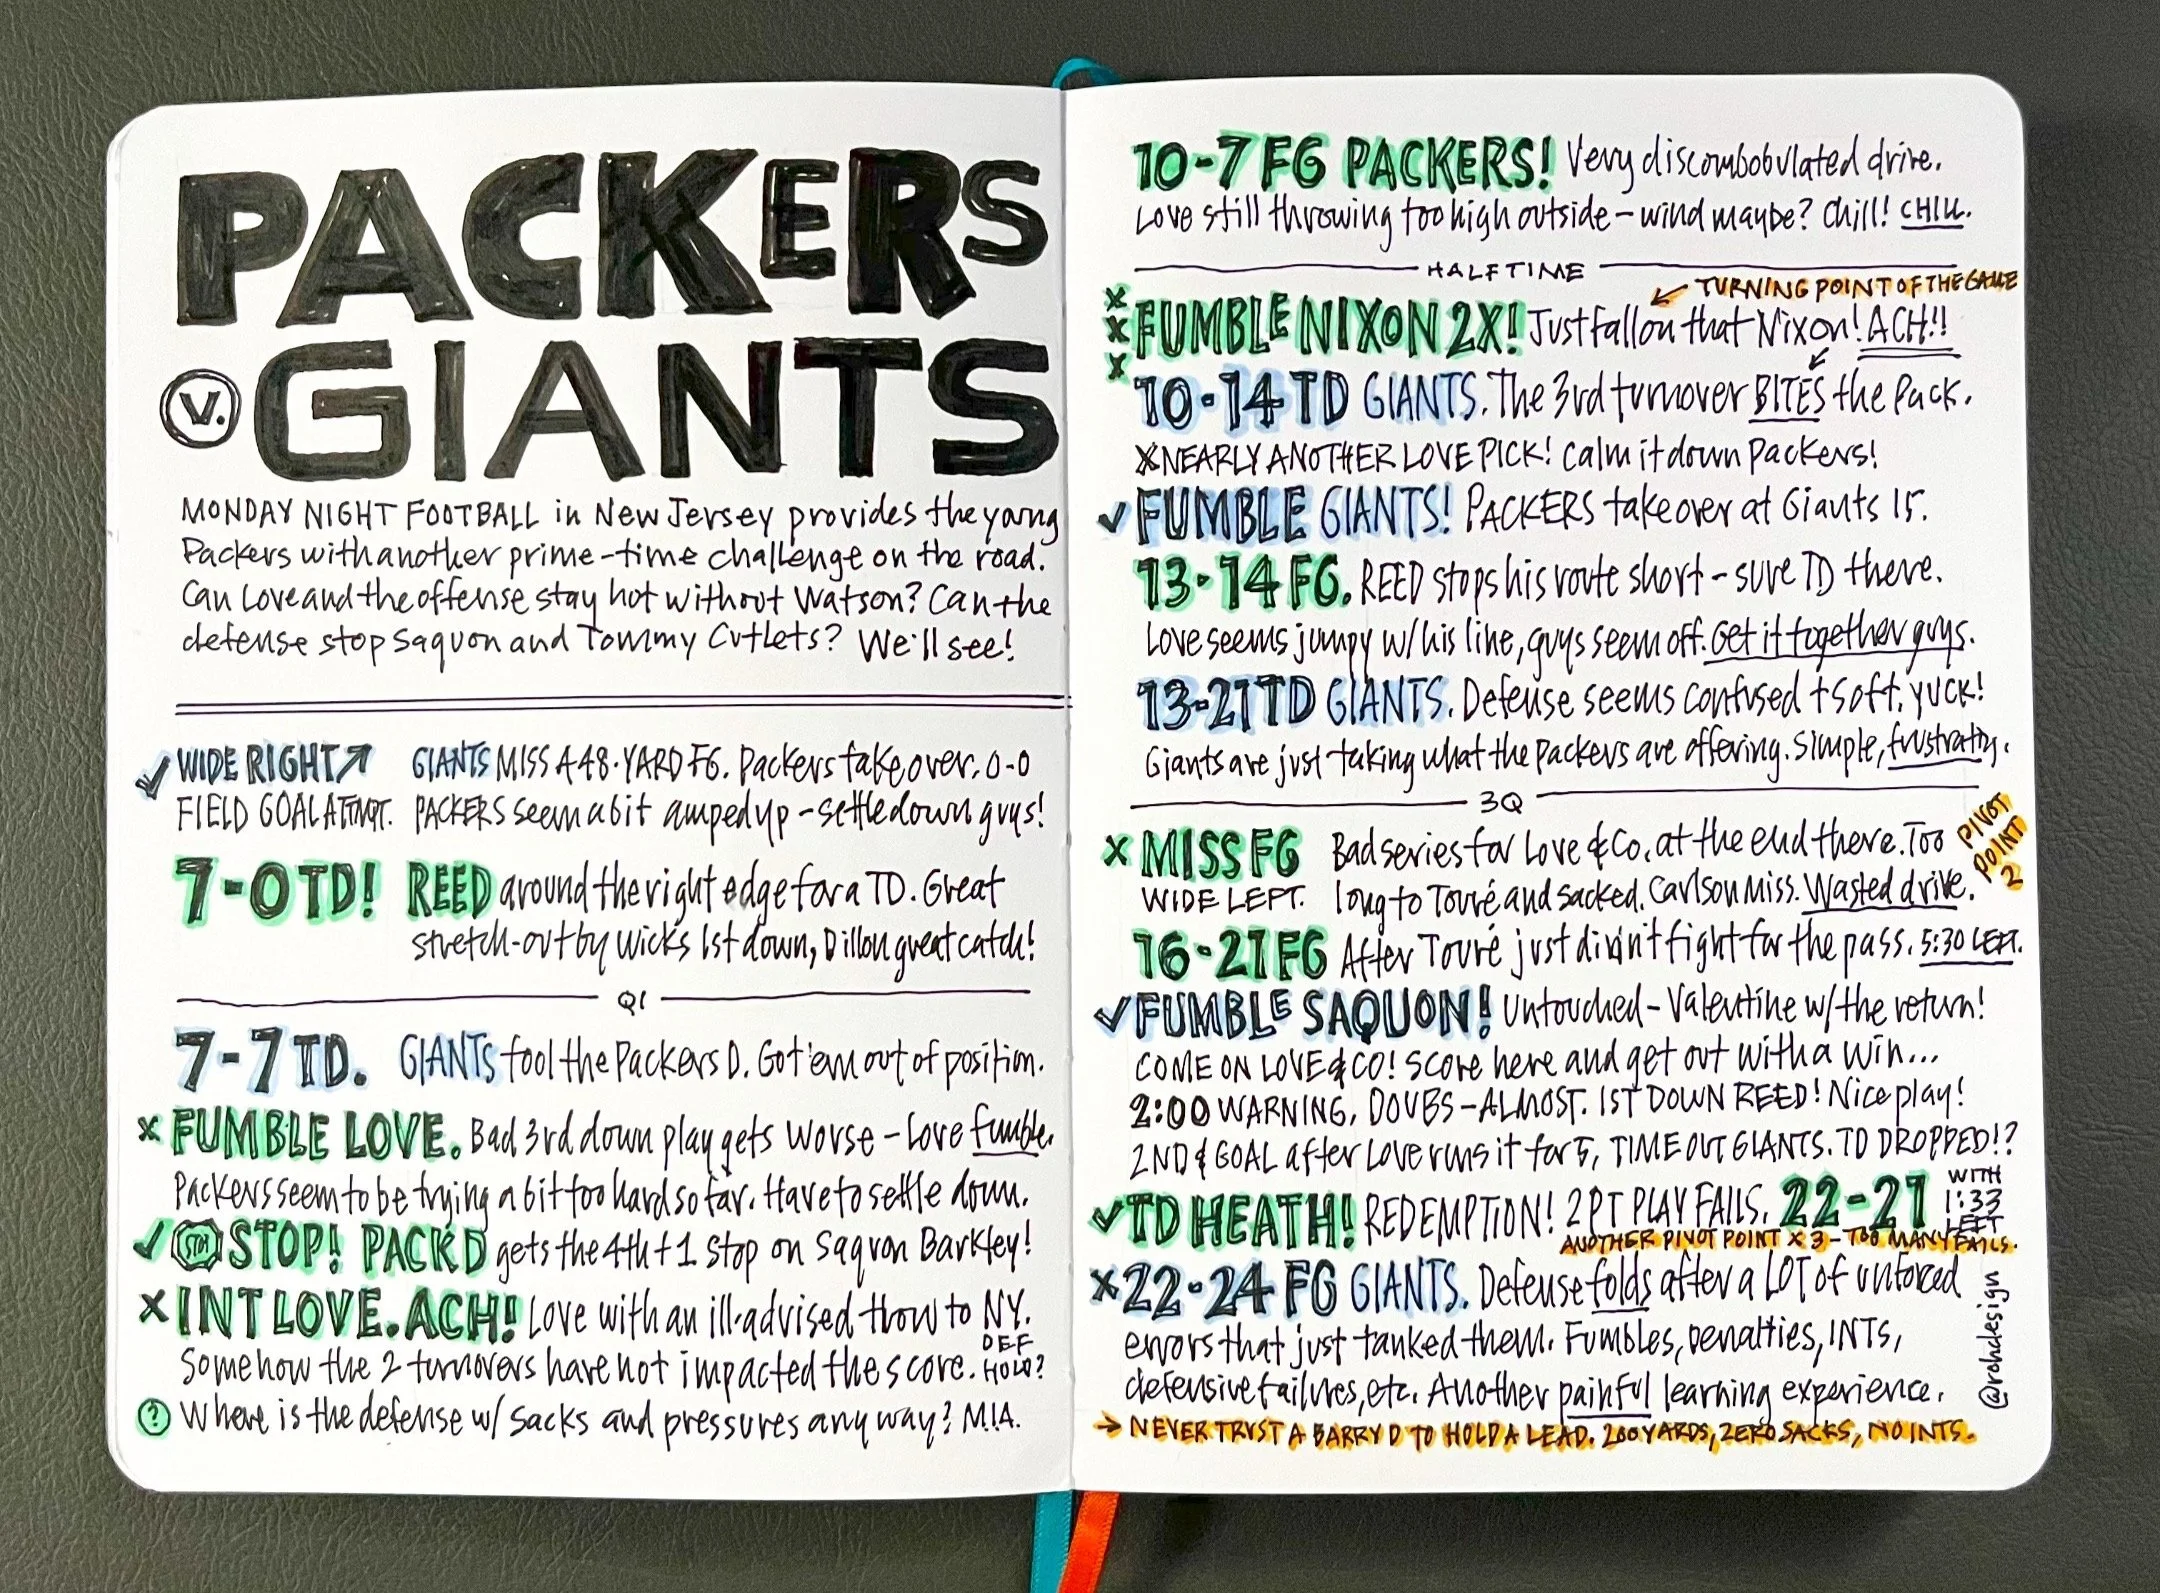 PACKERS
V. GIANTS
MONDAY NIGHT FOOTBALL in New Jersey provides the young
Packers with another prime-time challenge on the road.
Can Love and the offense stay hot without Watson? Can the
defense stop Saquon and Tommy Cutlets? We'll see!
WIDE RIGHT↗ GIANTS MISS A 48-YARD FG. Packers take over. 0-0
FIELD GOAL ATTMPT. PACKERS seem a bit amped up - settle down guys!
7-0 TD! REED around the right edge for a TD. Great
stretch-out by Wicks 1st down, Dillon great catch!
Q1
7-7 TD. GIANTS fool the Packers D. Got 'em out of position.
x FUMBLE LOVE. Bad 3rd down play gets worse - Love fumble.
Packers seem to be trying a bit too hard so far. Have to settle down.
✓ STOP! PACK D gets the 4th + 1 stop on Saquon Barkley!
x INT LOVE. ACH! Love with an ill-advised throw to NY.
DEF HOLD?
Somehow the 2 turnovers have not impacted the score.
? Where is the defense w/ sacks and pressures anyway? M.I.A.
10-7 FG PACKERS! Very discombobulated drive.
Love still throwing too high outside - wind maybe? Chill! CHILL.
HALFTIME
← TURNING POINT OF THE GAME
x x x FUMBLE NIXON 2X! Just fall on that Nixon! ACH!!
10-14 TD GIANTS. The 3rd turnover BITES the Pack.
x NEARLY ANOTHER LOVE PICK! Calm it down Packers!
✓ FUMBLE GIANTS! PACKERS take over at Giants 15.
13-14 FG. REED stops his route short - sure TD there.
Love seems jumpy w/ his line, guys seem off. Get it together guys.
13-21 TD GIANTS. Defense seems confused + soft. YUCK!
Giants are just taking what the Packers are offering. Simple, frustratng.
3Q
PIVOT POINT 2
x MISS FG Bad series for Love & Co. at the end there. Too
WIDE LEFT. long to Touré and sacked. Carlson Miss. Wasted drive.
16-21 FG After Touré just didn't fight for the pass. 5:30 LEFT.
✓ FUMBLE SAQUON! Untouched - Valentine w/ the return!
COME ON LOVE & CO! Score here and get out with a win...
2:00 WARNING. DOUBS - ALMOST. 1ST DOWN REED! Nice play!
2ND & GOAL after Love runs it for 5, TIME OUT GIANTS. TD DROPPED!?
✓ TD HEATH! REDEMPTION! 2PT PLAY FAILS. 22-21 WITH 1:33 LEFT
ANOTHER PIVOT POINT x 3 - TOO MANY FAILS.
x 22-24 FG GIANTS. Defense folds after a LOT of unforced
errors that just tanked them. Fumbles, penalties, INTS,
defensive failures, etc. Another painful learning experience.
→ NEVER TRUST A BARRY D TO HOLD A LEAD. 200 YARDS, ZERO SACKS, NO INTS.
@rohdesign